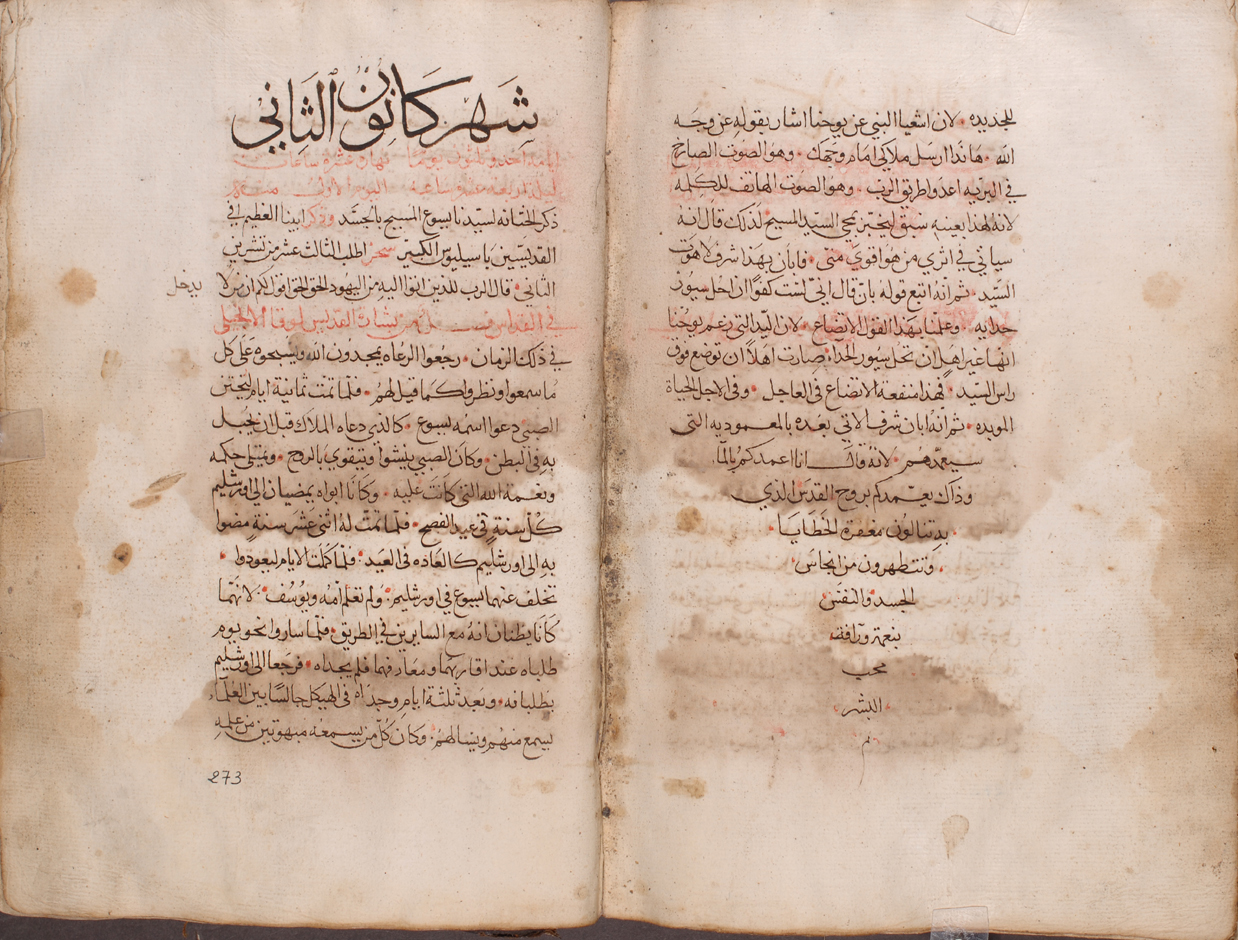 للجديده • لان اشعيا النبي عن يوحنا اشار بقوله عن وجه
الله • هانذا ارسل ملاكي امام وجهك • وهو الصوت الصارخ
في البريه اعدوا طريق الرب • وهو الصوت الهاتف للكلمه
لانه لهذا بعينه سبق ليختبر بمجي السيد المسيح لذلك قال انه
سياتي في اثري من هو اقوي مني • فابان بهذا شرف لاهوت
السيد • ثم انه اتبع قوله بان قال اني لست كفوًا ان احل سيور
حدايه • وعلمنا بهذا القول الاتضاع • لان اليد التي زعم يوحنا
انها غير اهل ان تحل سيور الحداء صارت اهلاً ان توضع فوق
راس السيد • فهذا منفعة الاتضاع في العاجل • وفي الاجل الحياة
الموبده • ثم انه ابان شرف الاتي بعده بالمعموديه التي
سيعمدهم • لانه قال انا اعمدكم بالماء
وذاك يعمدكم بروح القدس الذي
به تنالون مغفرة الخطايا •
• وتتطهرون من انجاس •
الجسد والنفس
بنعمة ورافة
محب
البشر
تم
شهر كانون الثاني
ايامه احد وثلثون يومًا نهاره عشرة ساعات
ليله اربعة عشر ساعة اليوم الاول منه
ذكر الختانه لسيدنا يسوع المسيح بالجسد وذكر ابينا العظيم في
القديسين باسيليوس الكبير سحر اطلب الثالث عشر من تشرين
الثاني • قال الرب للذين اتوا اليه من اليهود الحق الحق اقول لكم ان من لا يدخل
في القداس من بشارة القديس لوقا الانجيلي
في ذلك الزمان • رجعوا الرعاه يمجدون الله ويسبحوه على كل
ما سمعوا ونظروا كما قيل لهم • فلما تمت ثمانية ايام ليختتن
الصبي دعوا اسمه يسوع • كالذي دعاه الملاك قبل ان تحبل
به في البطن • وكان الصبي ينشوا ويتقوي بالروح • ويمتلي حكمه
ونعمة الله التي كانت عليه • وكانا ابواه يمضيان الى اورشليم
كل سنةٍ في عيد الفصح • فلما تمت له اثنى عشر سنةٍ مضوا
به الى اورشليم كالعاده في العيد • فلما كملت الايام ليعودوا •
تخلف عنهما يسوع في اورشليم • ولم تعلم امه ويوسف • لانهما
كانا يظنان انه مع السايرين في الطريق • فلما ساروا نحو يوم
طلباه عند اقاربهما ومعارفهما فلم يجداه • فرجعا الى اورشليم
يطلبانه • وبعد ثلثة ايام وجداه في الهيكل جالسًا بين العلماء
يسمع منهم ويسالهم • وكان كل من يسمعه مبهوتين من علمه
273